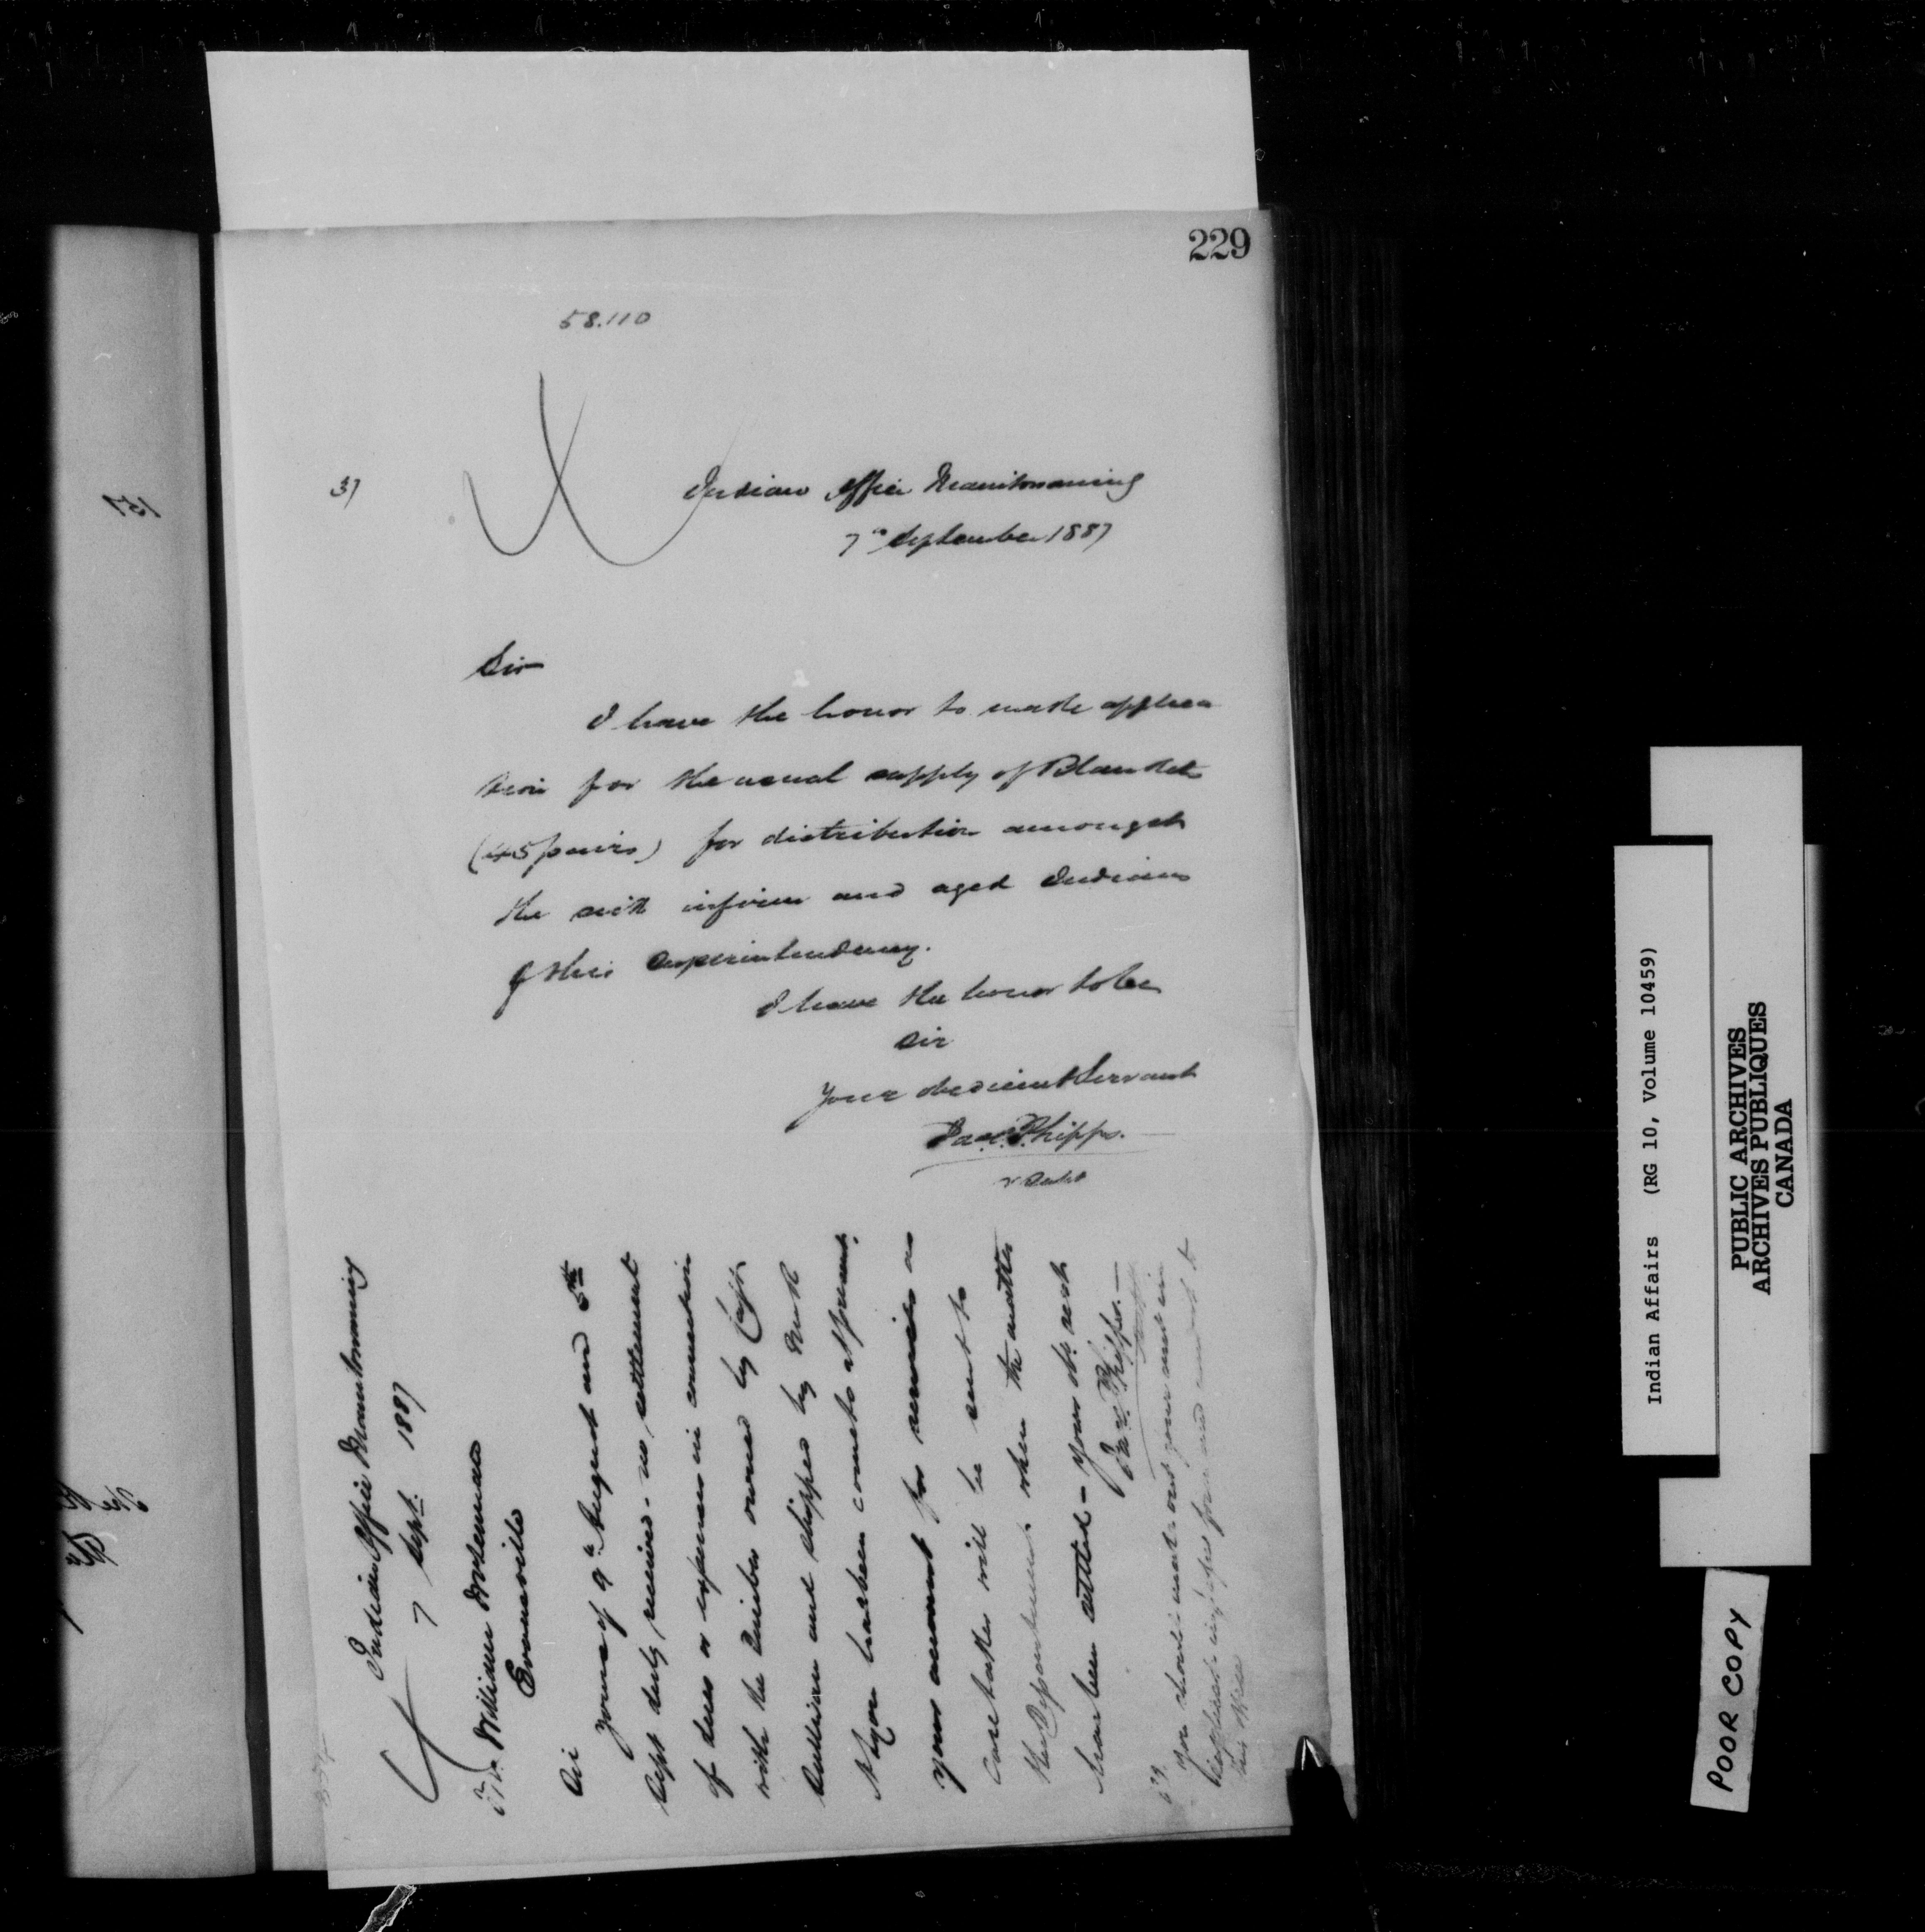 229
58.110
37
Indian Office Manitowaning
7th September 1887
Sir
I have the honor to make applica
tion for the usual supply of Blankets
(45 pairs) for distribution amongst
the sick infirm and aged Indians
of this Superintendency.
I have the honor to be
Sir
Your obedient Servant
Jas. C. Phipps.
V. Supt
Indian Office Manitowaning
7 Sept. 1887
Mr. William
Evansville
Sir
Yours of 9th August and 5th
Sept duly received - no settlement
of dues or expenses in connection
with the timber owned by Capt
Sullivan and shipped by
has been come to at present,
your account for services as
Caretaker will be sent to
the Department when the matter
has been settled - Your ob. servt
Jas. C. Phipps. -
you should make out your acct in
this Office
Indian Affairs (RG 10, Volume 10459)
PUBLIC ARCHIVES
ARCHIVES PUBLIQUES
CANADA
POOR COPY